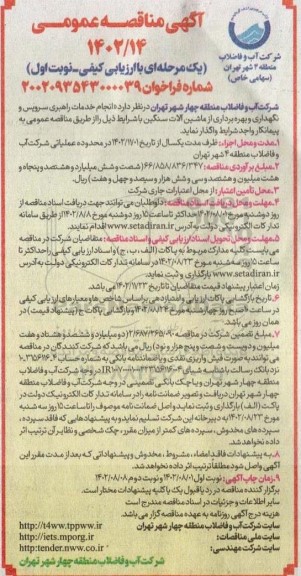 آگهی مناقصه عمومی
۱۴۰۲/۱۴
(یک مرحله‌ای با ارزیابی کیفی-نوبت اول)
شماره فراخوان ۲۰۰۲۰۹۳۵۴۳۰۰۰۰۳۹
شرکت آب و فاضلاب
منطقه ۴ شهر تهران
(سهامی خاص)
شرکت آب و فاضلاب منطقه چهار شهر تهران در نظر دارد «انجام خدمات راهبری سرویس و
نگهداری و بهره برداری از ماشین آلات سنگین با شرایط ذیل را از طریق مناقصه عمومی به
پیمانکار واجد شرایط واگذار نماید.
۱.مدت و محل اجراء: ظرف مدت یکسال از تاریخ ۱۴۰۲/۱۱/۰۱ در محدوده عملیاتی شرکت آب
و فاضلاب منطقه ۴ شهر تهران
۲.مبلغ برآوردی مناقصه: ۶۶/۸۵۸/۸۳۶/۳۴۷ (شصت و شش میلیارد و هشتصد و پنجاه و
هشت میلیون و هشتصد و سی و شش هزار و سیصد و چهل و هفت) ریال.
۳.محل تأمین اعتبار: از محل اعتبارات جاری شرکت
۴.مهلت و محل دریافت اسناد مناقصه: داوطلبان می توانند جهت دریافت اسناد مناقصه از
روز دوشنبه مورخ ۱۴۰۲/۰۸/۰۱ حداکثر تا ساعت ۱۵ روز دوشنبه مورخ ۱۴۰۲/۸/۸ از طریق سامانه
تدارکات الکترونیکی دولت به آدرس www.setadiran.ir اقدام نمایند.
۵.مهلت و محل تحویل اسناد ارزیابی کیفی و اسناد مناقصه: متقاضیان شرکت در مناقصه
می بایست کلیه مدارک مربوط به پاکات (الف، ب، ج) و اسناد ارزیابی کیفی را حداکثر تا
ساعت ۱۵ روز سه شنبه مورخ ۱۴۰۲/۰۸/۲۳ در سامانه تدارکات الکترونیکی دولت به آدرس
www.setadiran.ir بارگذاری و ثبت نمایند.
زمان اعتبار پیشنهاد قیمت متقاضیان تا تاریخ ۱۴۰۲/۱۱/۲۳ می باشد.
۶.تاریخ بازگشایی پاکات ارزیابی و امتیازدهی براساس شاخص ها و معیارهای ارزیابی کیفی
در ساعت ۹ صبح روز چهارشنبه مورخ ۱۴۰۲/۰۸/۲۴ و بازگشایی پاکات ج (پیشنهاد قیمت) در
همان روز می باشد.
میلیون و دویست و شصت و پنج هزار و نود) ریال می باشد که شرکت کنندگان در مناقصه
می توانند به صورت فیش واریزی نقدی و یا ضمانتنامه بانکی به شماره حساب
چهار شهر تهران و یا چک بانکی تضمینی در وجه شرکت آب و فاضلاب منطقه
چهار شهر تهران دریافت و تصویر ضمانت نامه را در سامانه تدارکات الکترونیک دولت در
پاکت (الف) بارگذاری و ثبت نماید و اصل ضمانت نامه موصوف را تا ساعت ۱۵ روز سه شنبه
مورخ ۱۴۰۲/۰۸/۲۳ به دبیرخانه این شرکت تسلیم نماید و به پیشنهادهایی که فاقد سپرده،
سپرده های مخدوش، سپرده های کمتر از میزان مقرر، چک شخصی و نظایر آن ترتیب اثر
داده نخواهد شد.
۸.به پیشنهادات فاقد امضاء، مشروط، مخدوش و پیشنهاداتی که بعد از مدت مقرر این
آگهی واصل شود مطلقا ترتیب اثر داده نخواهد شد.
۹.زمان چاپ آگهی: نوبت اول ۱۴۰۲/۰۸/۰۱ و نوبت دوم ۱۴۰۲/۰۸/۰۸
برگزار کننده مناقصه در رد یا قبول یک یا کلیه پیشنهادات مختار است.
سایر اطلاعات و جزئیات در اسناد مناقصه مندرج است
هزینه درج آگهی روزنامه به عهده مناقصه گزار می باشد.
سایت شرکت آب و فاضلاب منطقه چهار شهر تهران http://t4ww.tpww.ir
سایت ملی مناقصات: http://iets.mporg.ir
سایت شرکت مهندسی: http:tender.nww.co.ir
شرکت آب و فاضلاب منطقه چهار شهر تهران